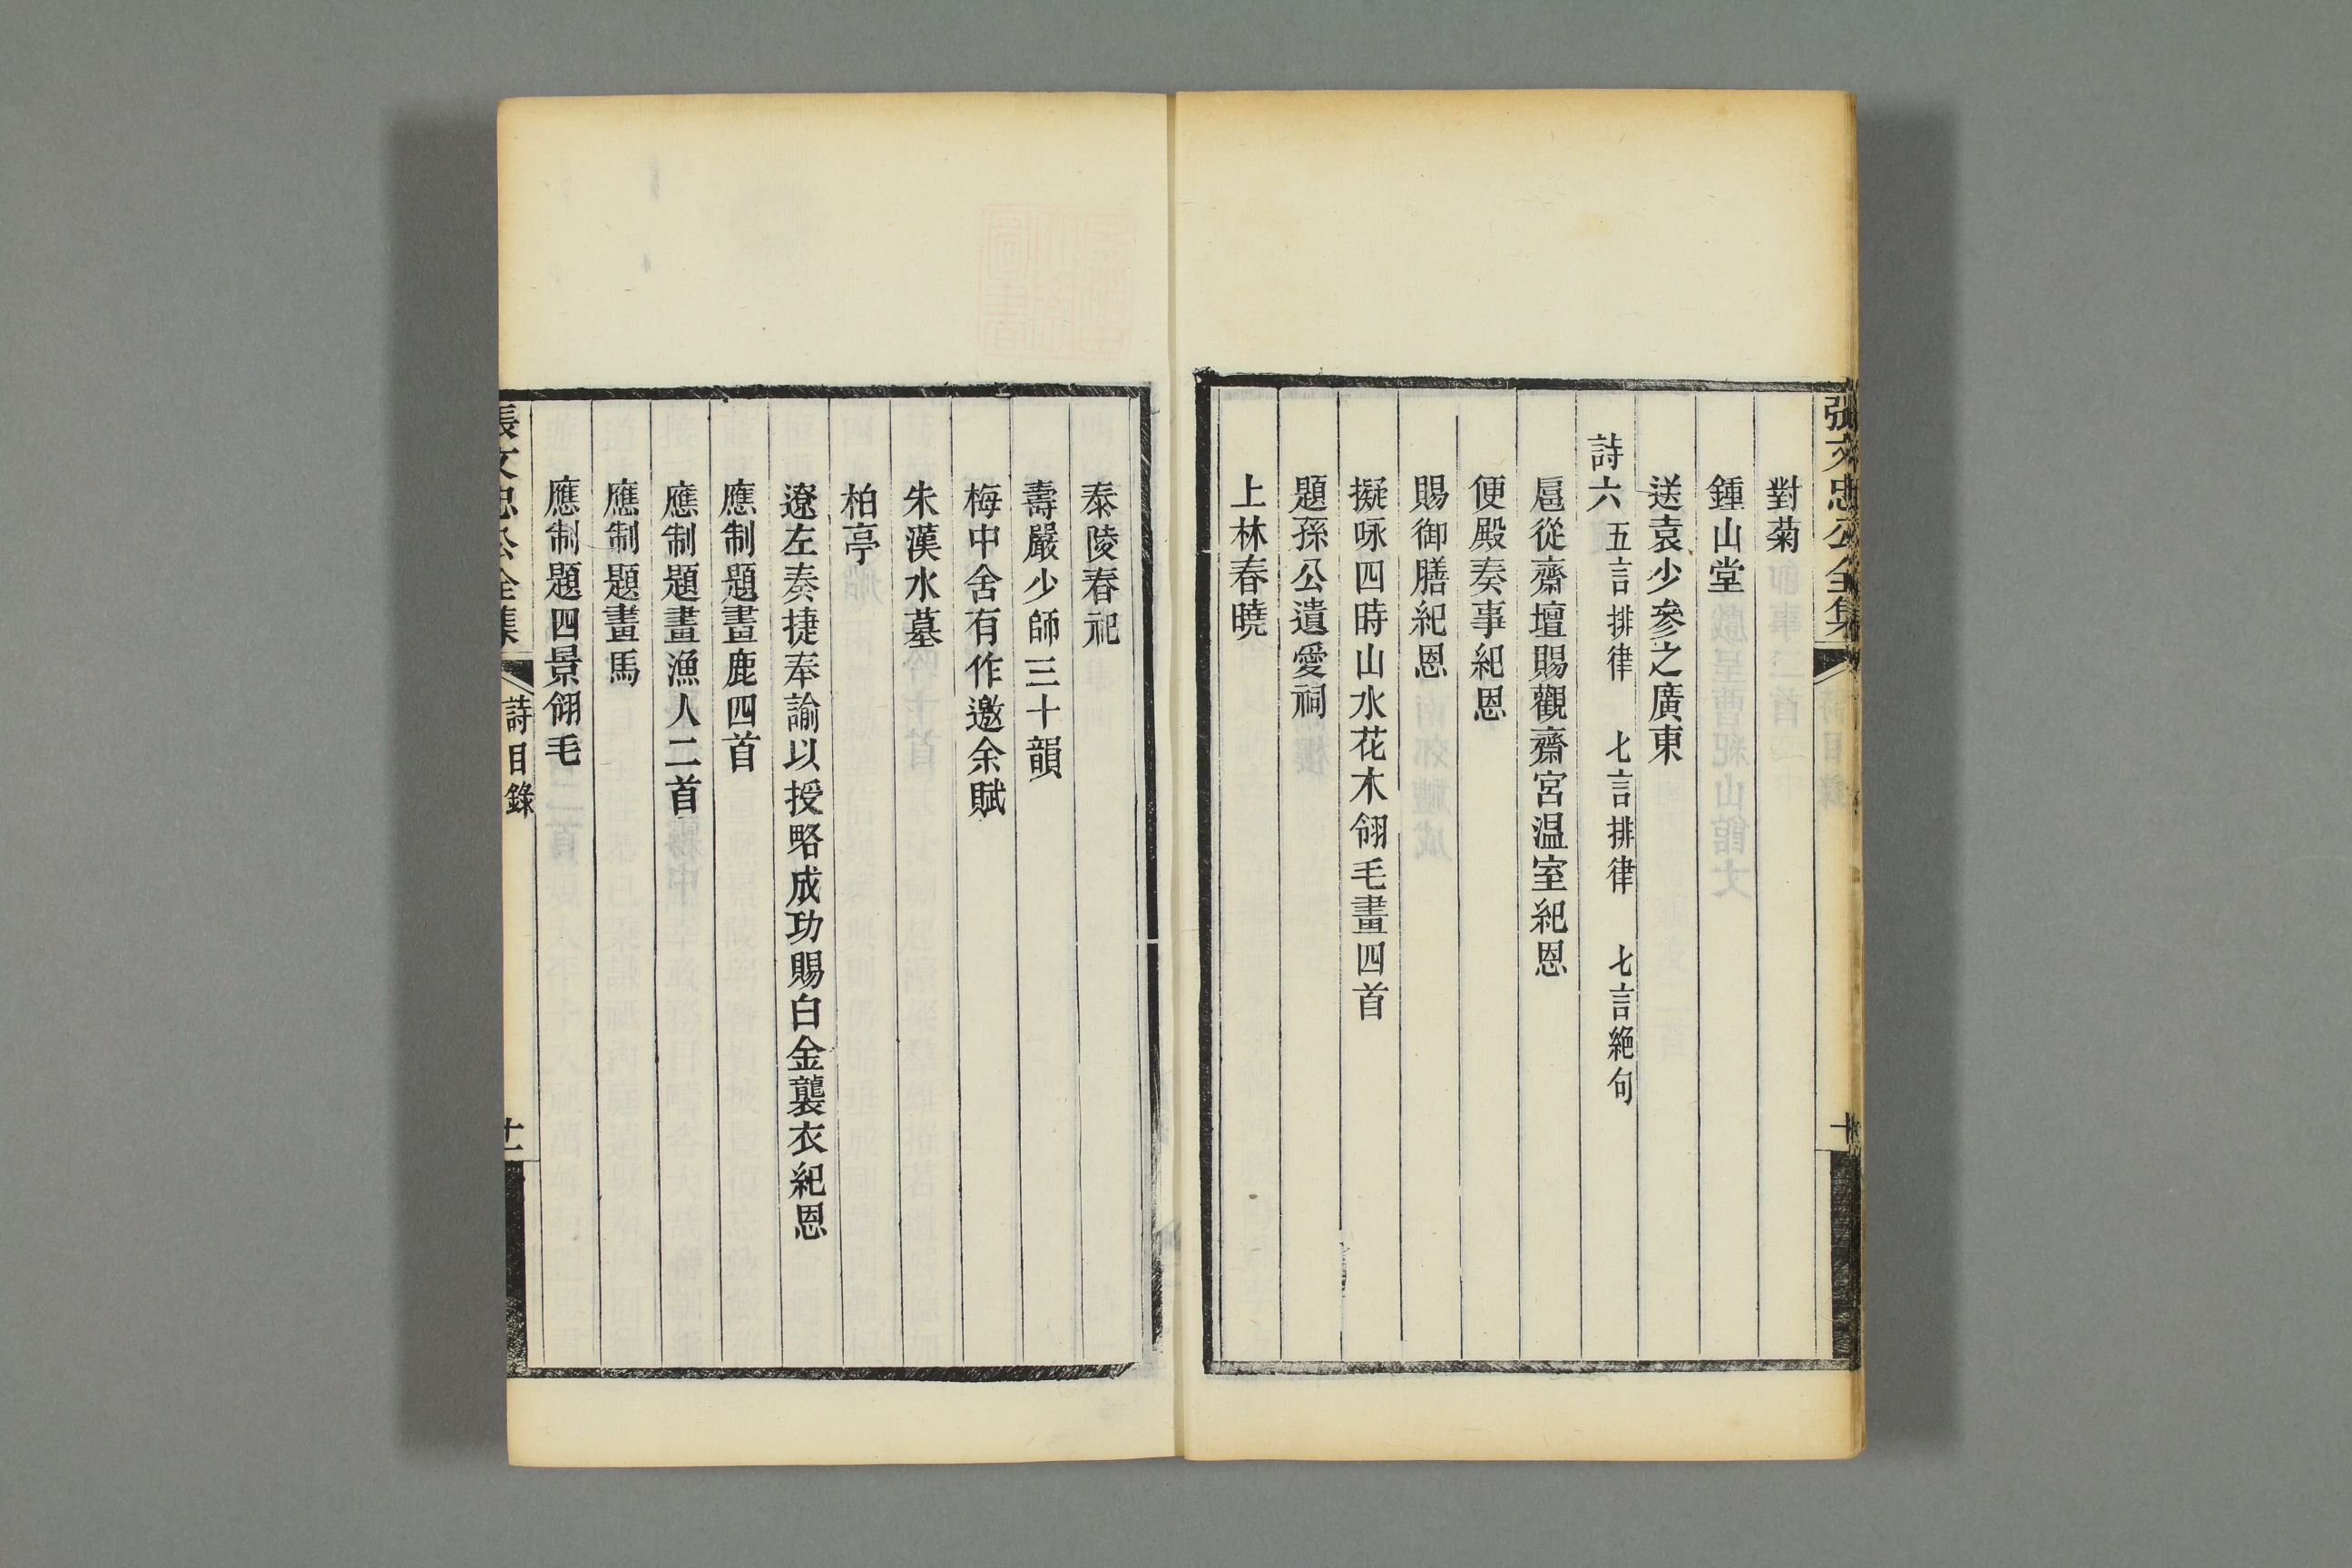 張文忠公全集
十
對菊
鍾山堂
送袁少參之廣東
詩六 五言排律 七言排律 七言絶句
扈從齋壇賜觀齋宮温室紀恩
便殿奏事紀恩
賜御膳紀恩
擬咏四時山水花木翎毛畫四首
題孫公遺愛祠
上林春曉
泰陵春祀
壽嚴少師三十韻
梅中舍有作邀余賦
朱漢水墓
柏亭
遼左奏捷奉諭以授略成功賜白金襲衣紀恩
應制題畫鹿四首
應制題畫漁人二首
應制題畫馬
應制題四景翎毛
張文忠公全集 詩目錄